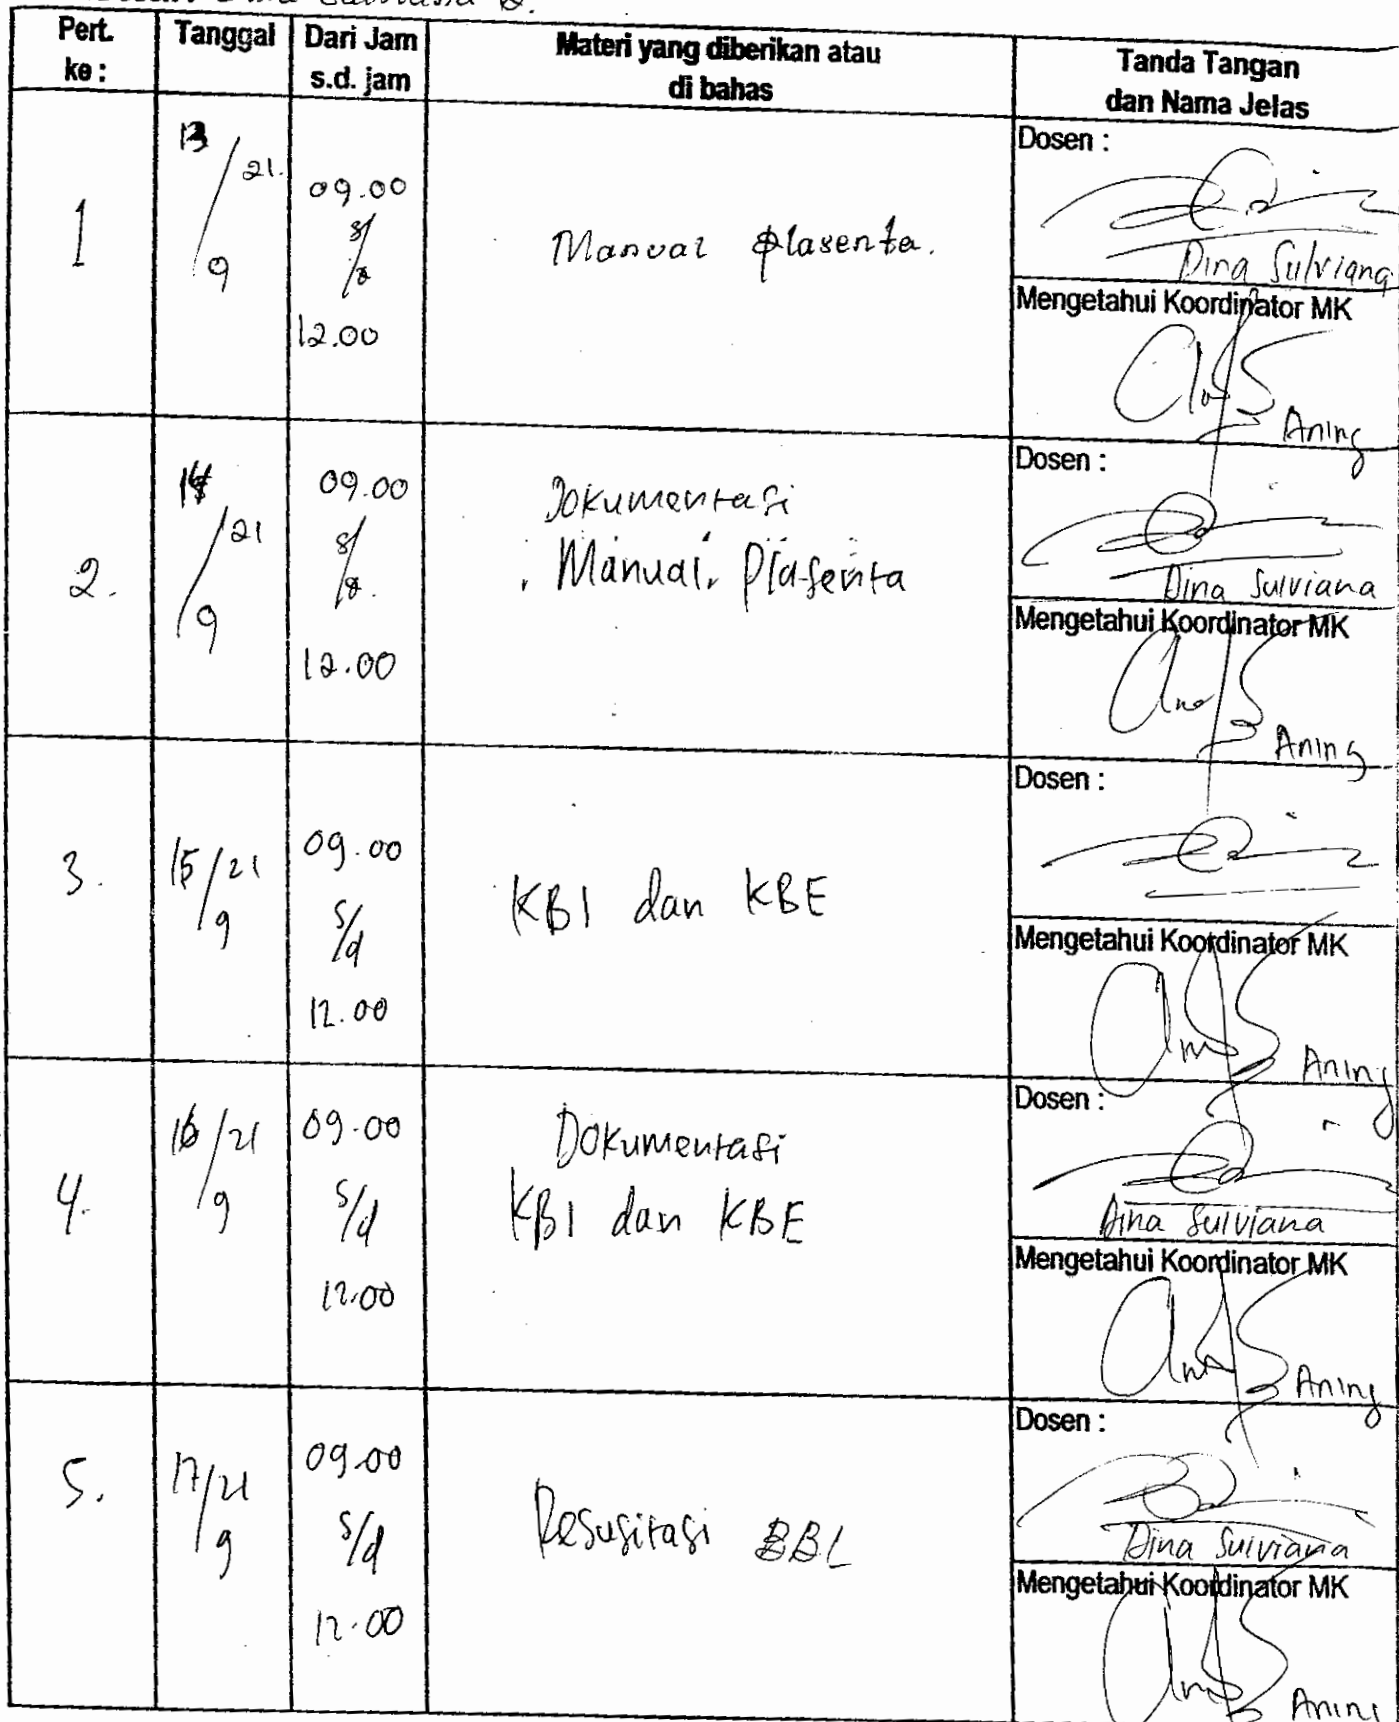 Pert. ke : Tanggal Dari Jam s.d. jam Materi yang diberikan atau di bahas Tanda Tangan dan Nama Jelas
1 13/9 21. 09.00 s/d 12.00 Manual plasenta.
Dosen :
Dina Sulviana
Mengetahui Koordinator MK
Aning
2. 14/9 21 09.00 s/d. 12.00
Dokumentasi
Manual Plasenta
Dosen :
Dina Sulviana
Mengetahui Koordinator MK
Aning
3. 15/9 21 09.00 s/d 12.00 KBI dan KBE
Dosen :
Mengetahui Koordinator MK
Aning
4. 16/9 21 09.00 s/d 12.00
Dokumentasi
KBI dan KBE
Dosen :
Dina Sulviana
Mengetahui Koordinator MK
Aning
5. 17/9 21 09.00 s/d 12.00 Resusitasi BBL
Dosen :
Dina Sulviana
Mengetahui Koordinator MK
Aning